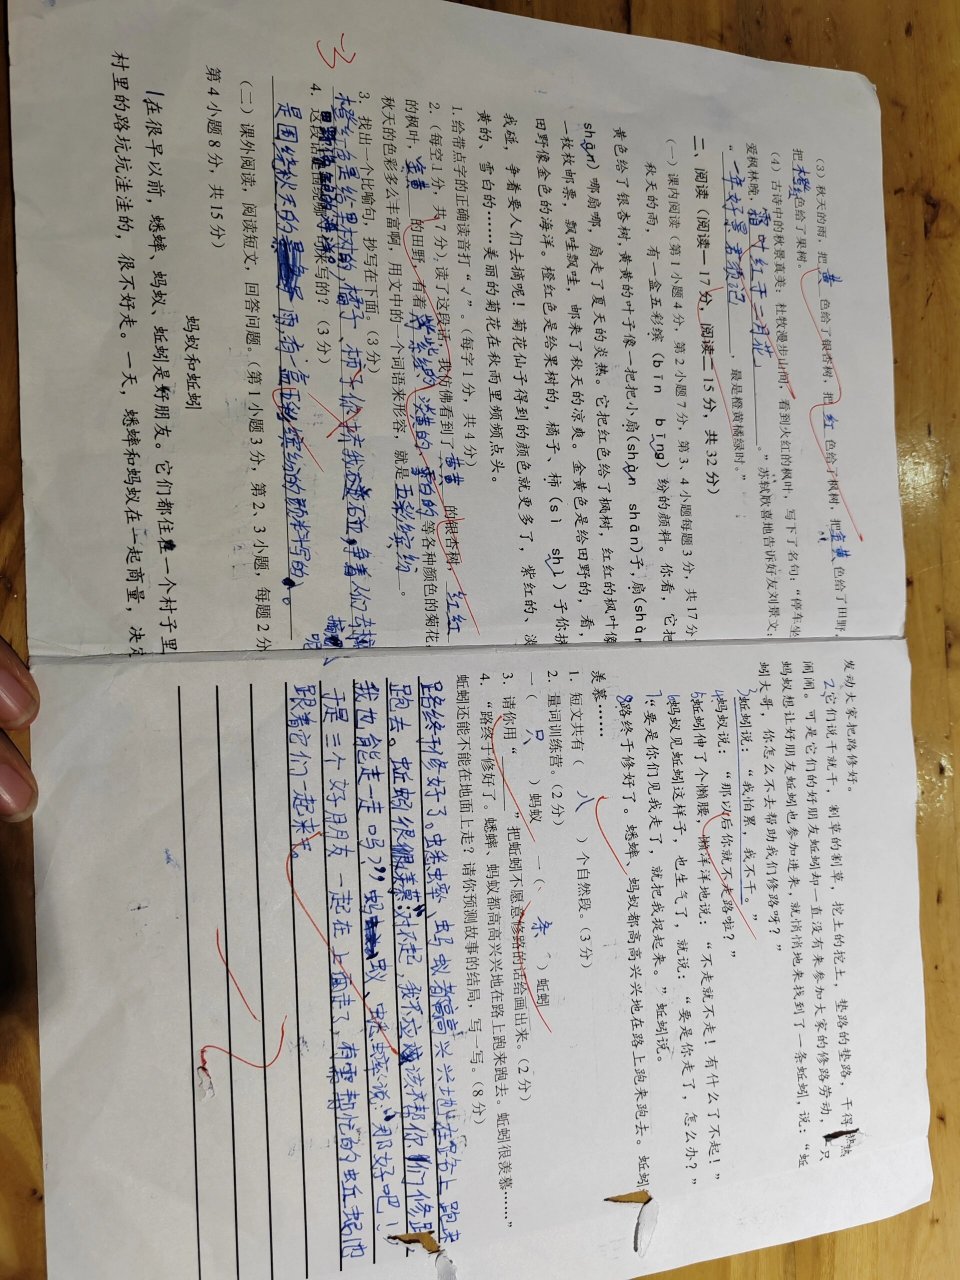 (3) 秋天的雨,把黄色给了银杏树,把红色给了枫树,把金黄色给了田野,
把橙红色给了果树。
(4) 古诗中的秋景真美:杜牧漫步山间,看到火红的枫叶,写下了名句:“停车坐
爱枫林晚,霜叶红于二月花。”苏轼欣喜地告诉好友刘景文:
“一年好景君须记,最是橙黄橘绿时。”
二、阅读(阅读一17分,阅读二15分,共32分)
(一)课内阅读(第1小题4分,第2小题7分,第3、4小题每题3分,共17分
秋天的雨,有一盒五彩缤(bīn bīng)纷的颜料。你看,它把
黄色给了银杏树,黄黄的叶子像一把把小扇(shàn shān)子,扇(shàn
shān)哪扇哪,扇走了夏天的炎热。它把红色给了枫树,红红的枫叶像
一枚枚邮票,飘哇飘哇,邮来了秋天的凉爽。金黄色是给田野的,看,
田野像金色的海洋。橙红色是给果树的,橘子、柿(sì shì)子你挤
我碰,争着要人们去摘呢!菊花仙子得到的颜色就更多了,紫红的、淡
黄的、雪白的……美丽的菊花在秋雨里频频点头。
1. 给带点字的正确读音打“√”。(每字1分,共4分)
2. (每空1分,共7分),读了这段话,我仿佛看到了黄黄的银杏树,红红
的枫叶,金黄的田野,有着紫红的、淡黄的、雪白的等各种颜色的菊花,
秋天的色彩多么丰富啊,用文中的一个词语来形容,就是五彩缤纷。
3. 找出一个比喻句,抄写在下面。(3分)
橙红色是给果树的,橘子、柿子你挤我碰,争着人们去摘呢
4. 这段话是围绕哪句话来写的?(3分)
是围绕秋天的雨,有一盒五彩缤纷的颜料写的。
3
(二)课外阅读,阅读短文,回答问题。(第1小题3分,第2、3小题,每题2分
第4小题8分,共15分)
蚂蚁和蚯蚓
1在很早以前,蟋蟀、蚂蚁、蚯蚓是好朋友。它们都住在一个村子里
村里的路坑坑洼洼的,很不好走。一天,蟋蟀和蚂蚁在一起商量,决定
发动大家把路修好。
2它们说干就干,割草的割草,挖土的挖土,垫路的垫路,干得热
闹闹。可是它们的好朋友蚯蚓却一直没有来参加大家的修路劳动,只
蚂蚁想让好朋友蚯蚓也参加进来,就悄悄地来找到了一条蚯蚓,说:“蚯
蚓大哥,你怎么不去帮助我们修路呀?”
3蚯蚓说:“我怕累,我不干。”
4蚂蚁说:“那以后你就不走路啦?”
5蚯蚓伸了个懒腰,懒洋洋地说:“不走就不走!有什么了不起!”
6蚂蚁见蚯蚓这样子,也生气了,就说:“要是你走了,怎么办?”
7“要是你们见我走了,就把我捉起来。”蚯蚓说。
8路终于修好了。蟋蟀、蚂蚁都高高兴兴地在路上跑来跑去。蚯蚓
羡慕……
1. 短文共有(八)个自然段。(3分)
2. 量词训练营。(2分)
一(只)蚂蚁 一(条)蚯蚓
3. 请你用“______”把蚯蚓不愿意修路的话给画出来。(2分)
4. “路终于修好了。蟋蟀、蚂蚁都高高兴兴地在路上跑来跑去。蚯蚓很羡慕……”
蚯蚓还能不能在地面上走?请你预测故事的结局,写一写。(8分)
路终于修好了。蟋蟀、蚂蚁都高高兴兴地在路上跑来
跑去。蚯蚓很羡慕:“对不起,我不应该不帮你们修路
我也能走一走吗?”蚂蚁、蟋蟀说:“那好吧!”
于是三个好朋友一起在上面走了,
跟着它们一起来。